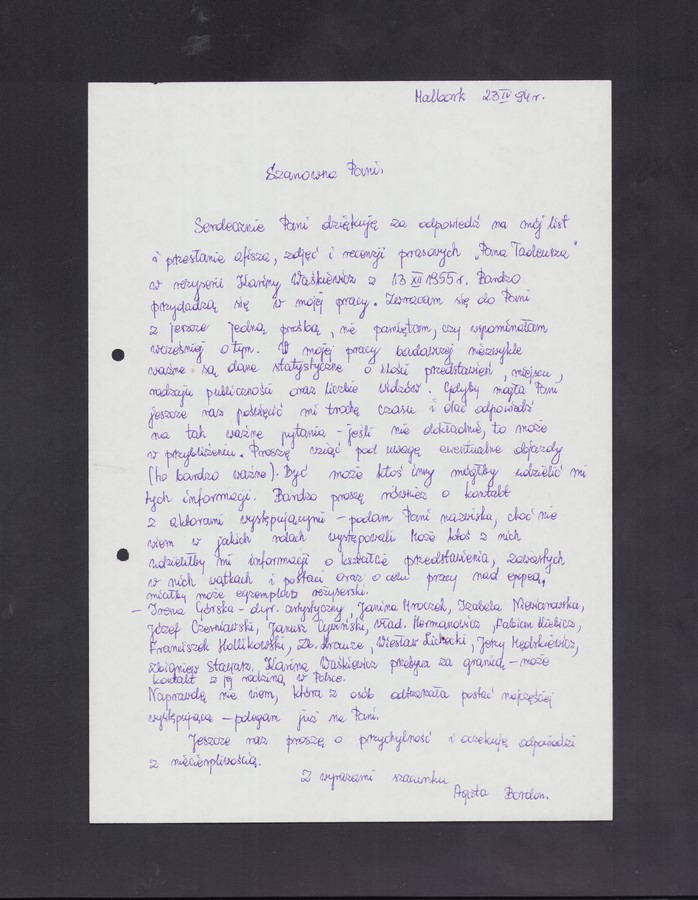 Malbork 23 IV 94r.
Szanowna Pani.
Serdecznie Pani dziękuję za odpowiedź na mój list
i przesłanie afisza, zdjęć i recenzji prasowych "Pana Tadeusza"
w reżyserii Haliny Waśkiewicz z 13 XII 1955 r. Bardzo
przydadzą się w mojej pracy. Zwracam się do Pani
z jeszcze jedną prośbą, nie pamiętam, czy wspominałam
wcześniej o tym. W mojej pracy badawczej niezwykle
ważne są dane statystyczne o ilości przedstawień, miejscu,
rodzaju publiczności oraz liczbie widzów. Gdyby mogła Pani
jeszcze raz poświęcić mi trochę czasu i dać odpowiedź
na tak ważne pytania - jeśli nie dokładnie, to może
w przybliżeniu. Proszę wziąć pod uwagę ewentualne objazdy
(to bardzo ważne). Być może ktoś inny mógłby udzielić mi
tych informacji. Bardzo proszę również o kontakt
z aktorami występującymi - podam Pani nazwiska, choć nie
wiem w jakich rolach występowali Może ktoś z nich
udzieliłby mi informacji o kształcie przedstawienia, zawartych
w nich wątkach i postaci oraz o celu pracy nad epopeą,
miałby może egzemplarz reżyserski.
- Irena Górska - dyr. artystyczny, Janina Mroczek, Izabela
Józef Czerniawski, Janusz Cywiński, Wład. Hermanowicz, Fabian Kiebicz,
Franciszek Hollikowski, Zb. Krauze, Wiesław Lichocki, Jerzy
Zbigniew Stawarz. Halina Waśkiewicz przebywa za granicą - może
kontakt z jej rodziną w Polsce.
Naprawdę nie wiem, która z osób odtwarzała postać najczęściej
występującą - polegam już na Pani.
Jeszcze raz proszę o przychylność i oczekuję odpowiedzi
z niecierpliwością.
Z wyrazami szacunku
Agata Bordon.